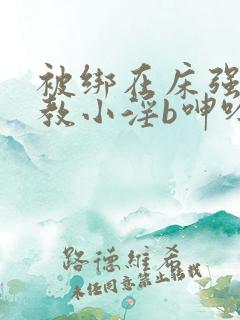 被绑在床强
教小淫b呻吟
路德维希
未经同意禁止转载